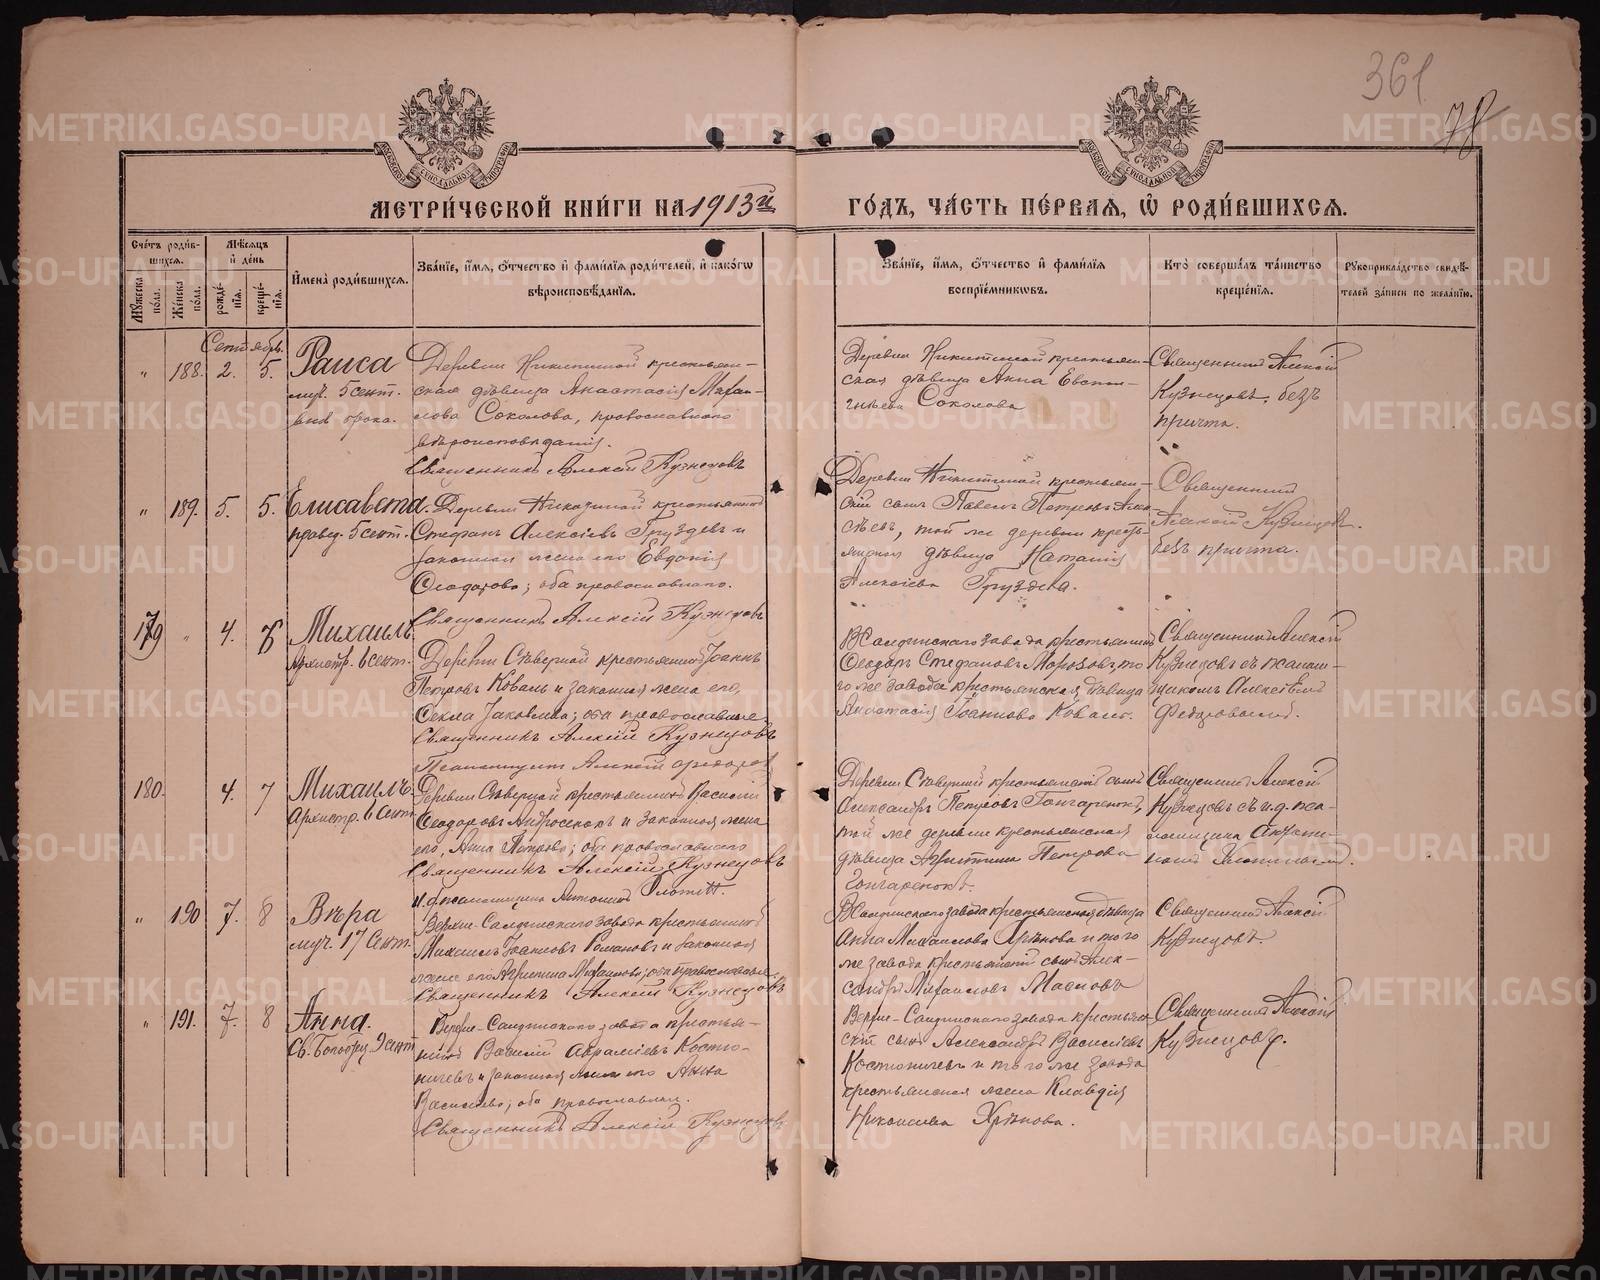 361
78
МЕТРИ́ЧЕСКОЙ КНИ́ГИ НА 1913й ГО́ДЪ, ЧА́СТЬ ПЕ́РВАЯ, Ѡ҆ РОДИ́ВШИХСѦ.
Сче́тъ роди́в-
шихсѧ.
Мꙋ́жеска по́ла.
Же́нска по́ла.
Мѣ́сѧцъ
и҆ де́нь
рожде́-
нїѧ.
креще́-
нїѧ.
И҆мена̀ роди́вшихсѧ.
Зва́нїе, и҆́мѧ, ѻ҆́тчество и҆ фами́лїѧ роди́телей, и҆ како́гѡ
вѣроисповѣ́данїѧ.
Зва́нїе, и҆́мѧ, ѻ҆́тчество и҆ фами́лїѧ
воспрїе́мникѡвъ.
Кто̀ соверша́лъ та́инство
креще́нїѧ.
Рꙋкоприкла́дство свидѣ́-
телей за́писи по жела́нїю.
Сентябрь.
" 188. 2. 5.
Раиса
муч. 5 сент.
Деревни Никитиной крестьян-
ская дѣвица Анастасія Михаи-
лова Соколова, православнаго
вѣроисповѣданія.
Священникъ Алексій Кузнецовъ
Деревни Никитиной крестьян-
ская дѣвица Анна Евспи-
гнѣева Соколова
Священникъ Алексій
Кузнецовъ, безъ
причта.
" 189. 5. 5.
Елисавета.
правед. 5 сент.
Деревни Никитиной крестьянинъ
Стефанъ Алексіевъ Груздевъ и
законная жена его Евдокія
Ѳеодорова; оба православнаго.
Священникъ Алексій Кузнецовъ
Деревни Никитиной крестьян-
скій сынъ Павелъ Петровъ
той же деревни кресть-
янская дѣвица Наталія
Алексіева Груздева.
Священникъ
Алексій Кузнецовъ.
безъ причта.
179 " 4. 6
Михаилъ
Архистр. 6 сент.
Деревни Сѣверной крестьянинъ Іоаннъ
Петровъ Коваль и законная жена его,
Ѳекла Іаковлева; оба православные.
Священникъ Алексій Кузнецовъ
Псаломщикъ Алексій Ѳедоров
В Салдинскаго завода крестьянинъ
Ѳеодоръ Стефановъ Морозовъ, то-
го же завода крестьянская дѣвица
Анастасія Іоаннова Коваль.
Священникъ Алексій
Кузнецовъ съ псалом-
щикомъ Алексѣемъ
Федоровымъ.
180. 4. 7
Михаилъ.
Архистр. 6 Сент.
Деревни Сѣверной крестьянинъ Василій
Ѳеодоровъ Андросенокъ и законная жена
его, Анна Петрова; оба православнаго
Священникъ Алексій Кузнецовъ
И.д. псаломщика Антоній
Деревни Сѣверной крестьянскій сынъ
Александръ Петровъ Гончаренокъ,
той же деревни крестьянская
дѣвица Петрова
Гончаренокъ.
Священникъ Алексій
Кузнецовъ съ и.д. пса-
ломщика Антоні-
емъ
" 190 7. 8
Вѣра
муч. 17 Сент.
Верхне-Салдинскаго завода крестьянинъ
Михаилъ Іоанновъ Романовъ и законная
жена его Агриппина Михаилова; оба православные.
Священникъ Алексій Кузнецовъ
В Салдинскаго завода крестьянская дѣвица
Анна Михаилова Хрѣнова и того
же завода крестьянскій сынъ Алек-
сандръ Михаиловъ
Священникъ Алексій
Кузнецовъ.
" 191. 7. 8
Анна.
Св. Богоотец. 9 сент
Верхне-Салдинскаго завода крестья-
нинъ Василій Авраміевъ Костю-
ничевъ и законная жена его Анна
Васильева; оба православные.
Священникъ Алексій Кузнецовъ
Верхне-Салдинскаго завода крестьян-
скій сынъ Александръ Василіевъ
Костюничевъ и того же завода
крестьянская жена Клавдія
Николаева Хрѣнова.
Священникъ Алексій
Кузнецовъ.
METRIKI.GASO-URAL.RU